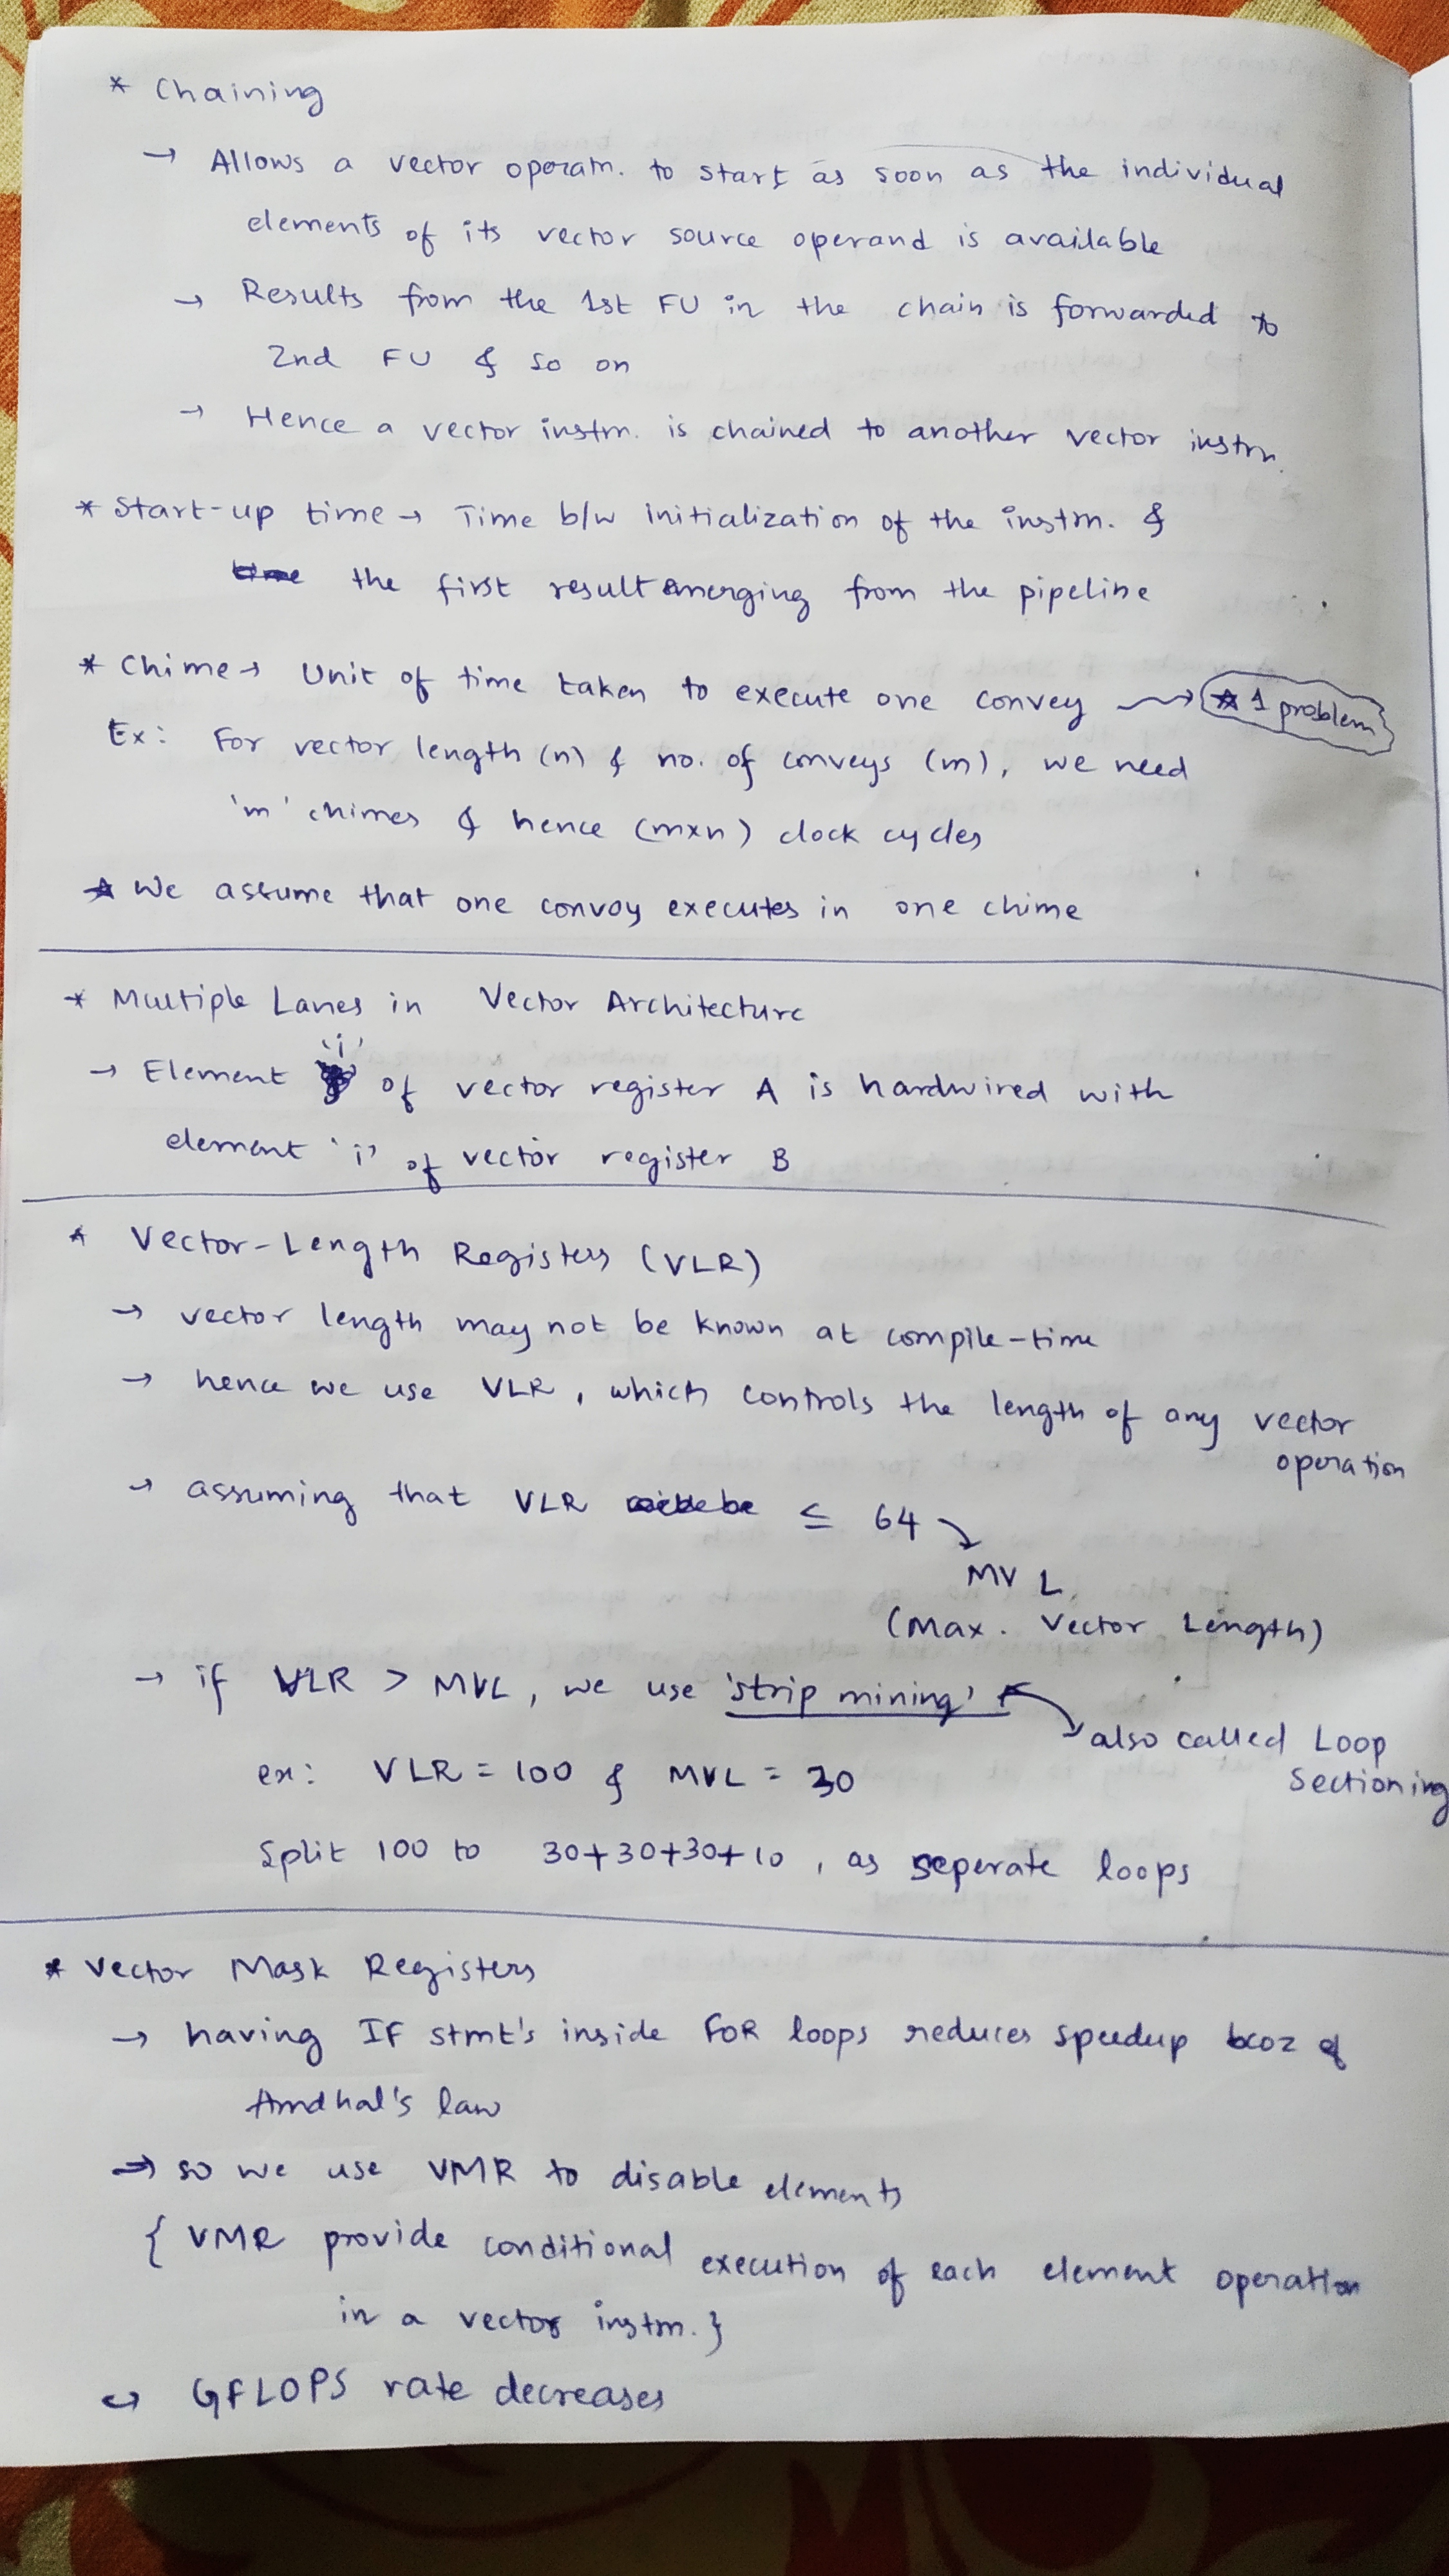 * Chaining
→ Allows a vector operatn. to start as soon as the individual
elements of its vector source operand is available
→ Results from the 1st FU in the chain is forwarded to
2nd FU & so on
→ Hence a vector instrn. is chained to another vector instrn.
* Start-up time → Time b/w initialization of the instrn. &
the first result emerging from the pipeline
* Chime → Unit of time taken to execute one convey → ☆ 1 problem
Ex: For vector length (n) & no. of conveys (m), we need
'm' chimes & hence (m×n) clock cycles
☆ We assume that one convoy executes in one chime
* Multiple Lanes in Vector Architecture
→ Element 'i' of vector register A is hardwired with
element 'i' of vector register B
* Vector-Length Registers (VLR)
→ vector length may not be known at compile-time
→ hence we use VLR, which controls the length of any vector
operation
→ assuming that VLR ≤ 64
MVL
(Max. Vector Length)
→ if VLR > MVL, we use 'strip mining'
also called Loop
Sectioning
ex: VLR = 100 & MVL = 30
Split 100 to 30+30+30+10, as seperate loops
* Vector Mask Registers
→ having IF stmt's inside FOR loops reduces speedup bcoz of
Amdhal's law
→ so we use VMR to disable elements
{ VMR provide conditional execution of each element operation
in a vector instrn. }
↪ GFLOPS rate decreases